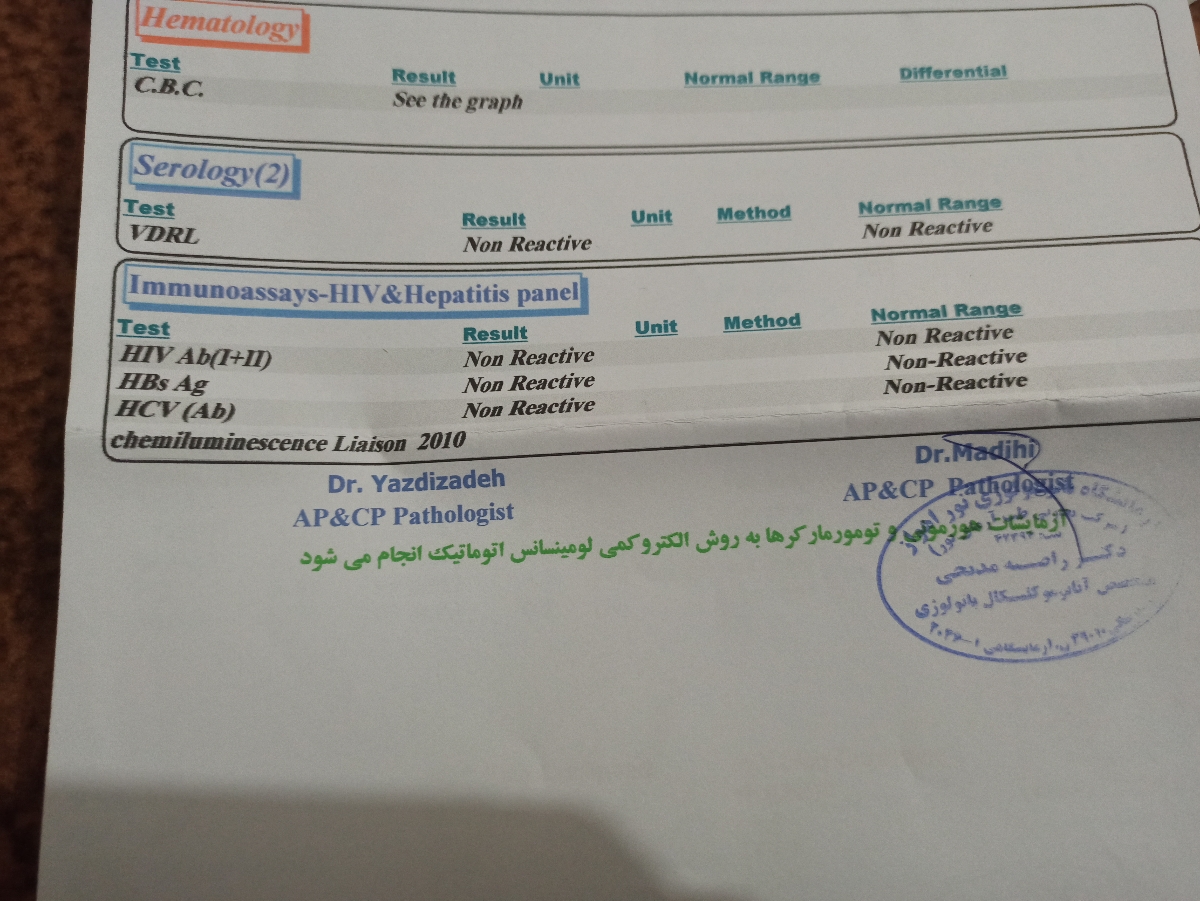 Hematology
Test Result Unit Normal Range Differential
C.B.C. See the graph
Serology(2)
Test Result Unit Method Normal Range
VDRL Non Reactive Non Reactive
Immunoassays-HIV&Hepatitis panel
Test Result Unit Method Normal Range
HIV Ab(I+II) Non Reactive Non Reactive
HBs Ag Non Reactive Non-Reactive
HCV (Ab) Non Reactive Non-Reactive
chemiluminescence Liaison 2010
Dr. Yazdizadeh Dr.Madihi
AP&CP Pathologist AP&CP Pathologist
آزمایشات هورمونی و تومورمارکرها به روش الکتروکمی لومینسانس اتوماتیک انجام می شود
دکتر راضیه مدیحی
آناتومیکال پاتولوژی